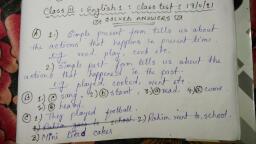 Class III : English 1 : class test : 17/5/21
SOLVED ANSWERS
(A) 1.) Simple present form tells us about
the actions that happens in present time.
eg. read, play, cook etc.
2) Simple past form tells us about the
actions that happened in the past.
eg. played, cooked, went etc.
(B) 1) sang. 2) 3) read. 4) come
5) heard
(C) 1.) They played football.
2) Rahim went to school.
2) Mini liked cakes